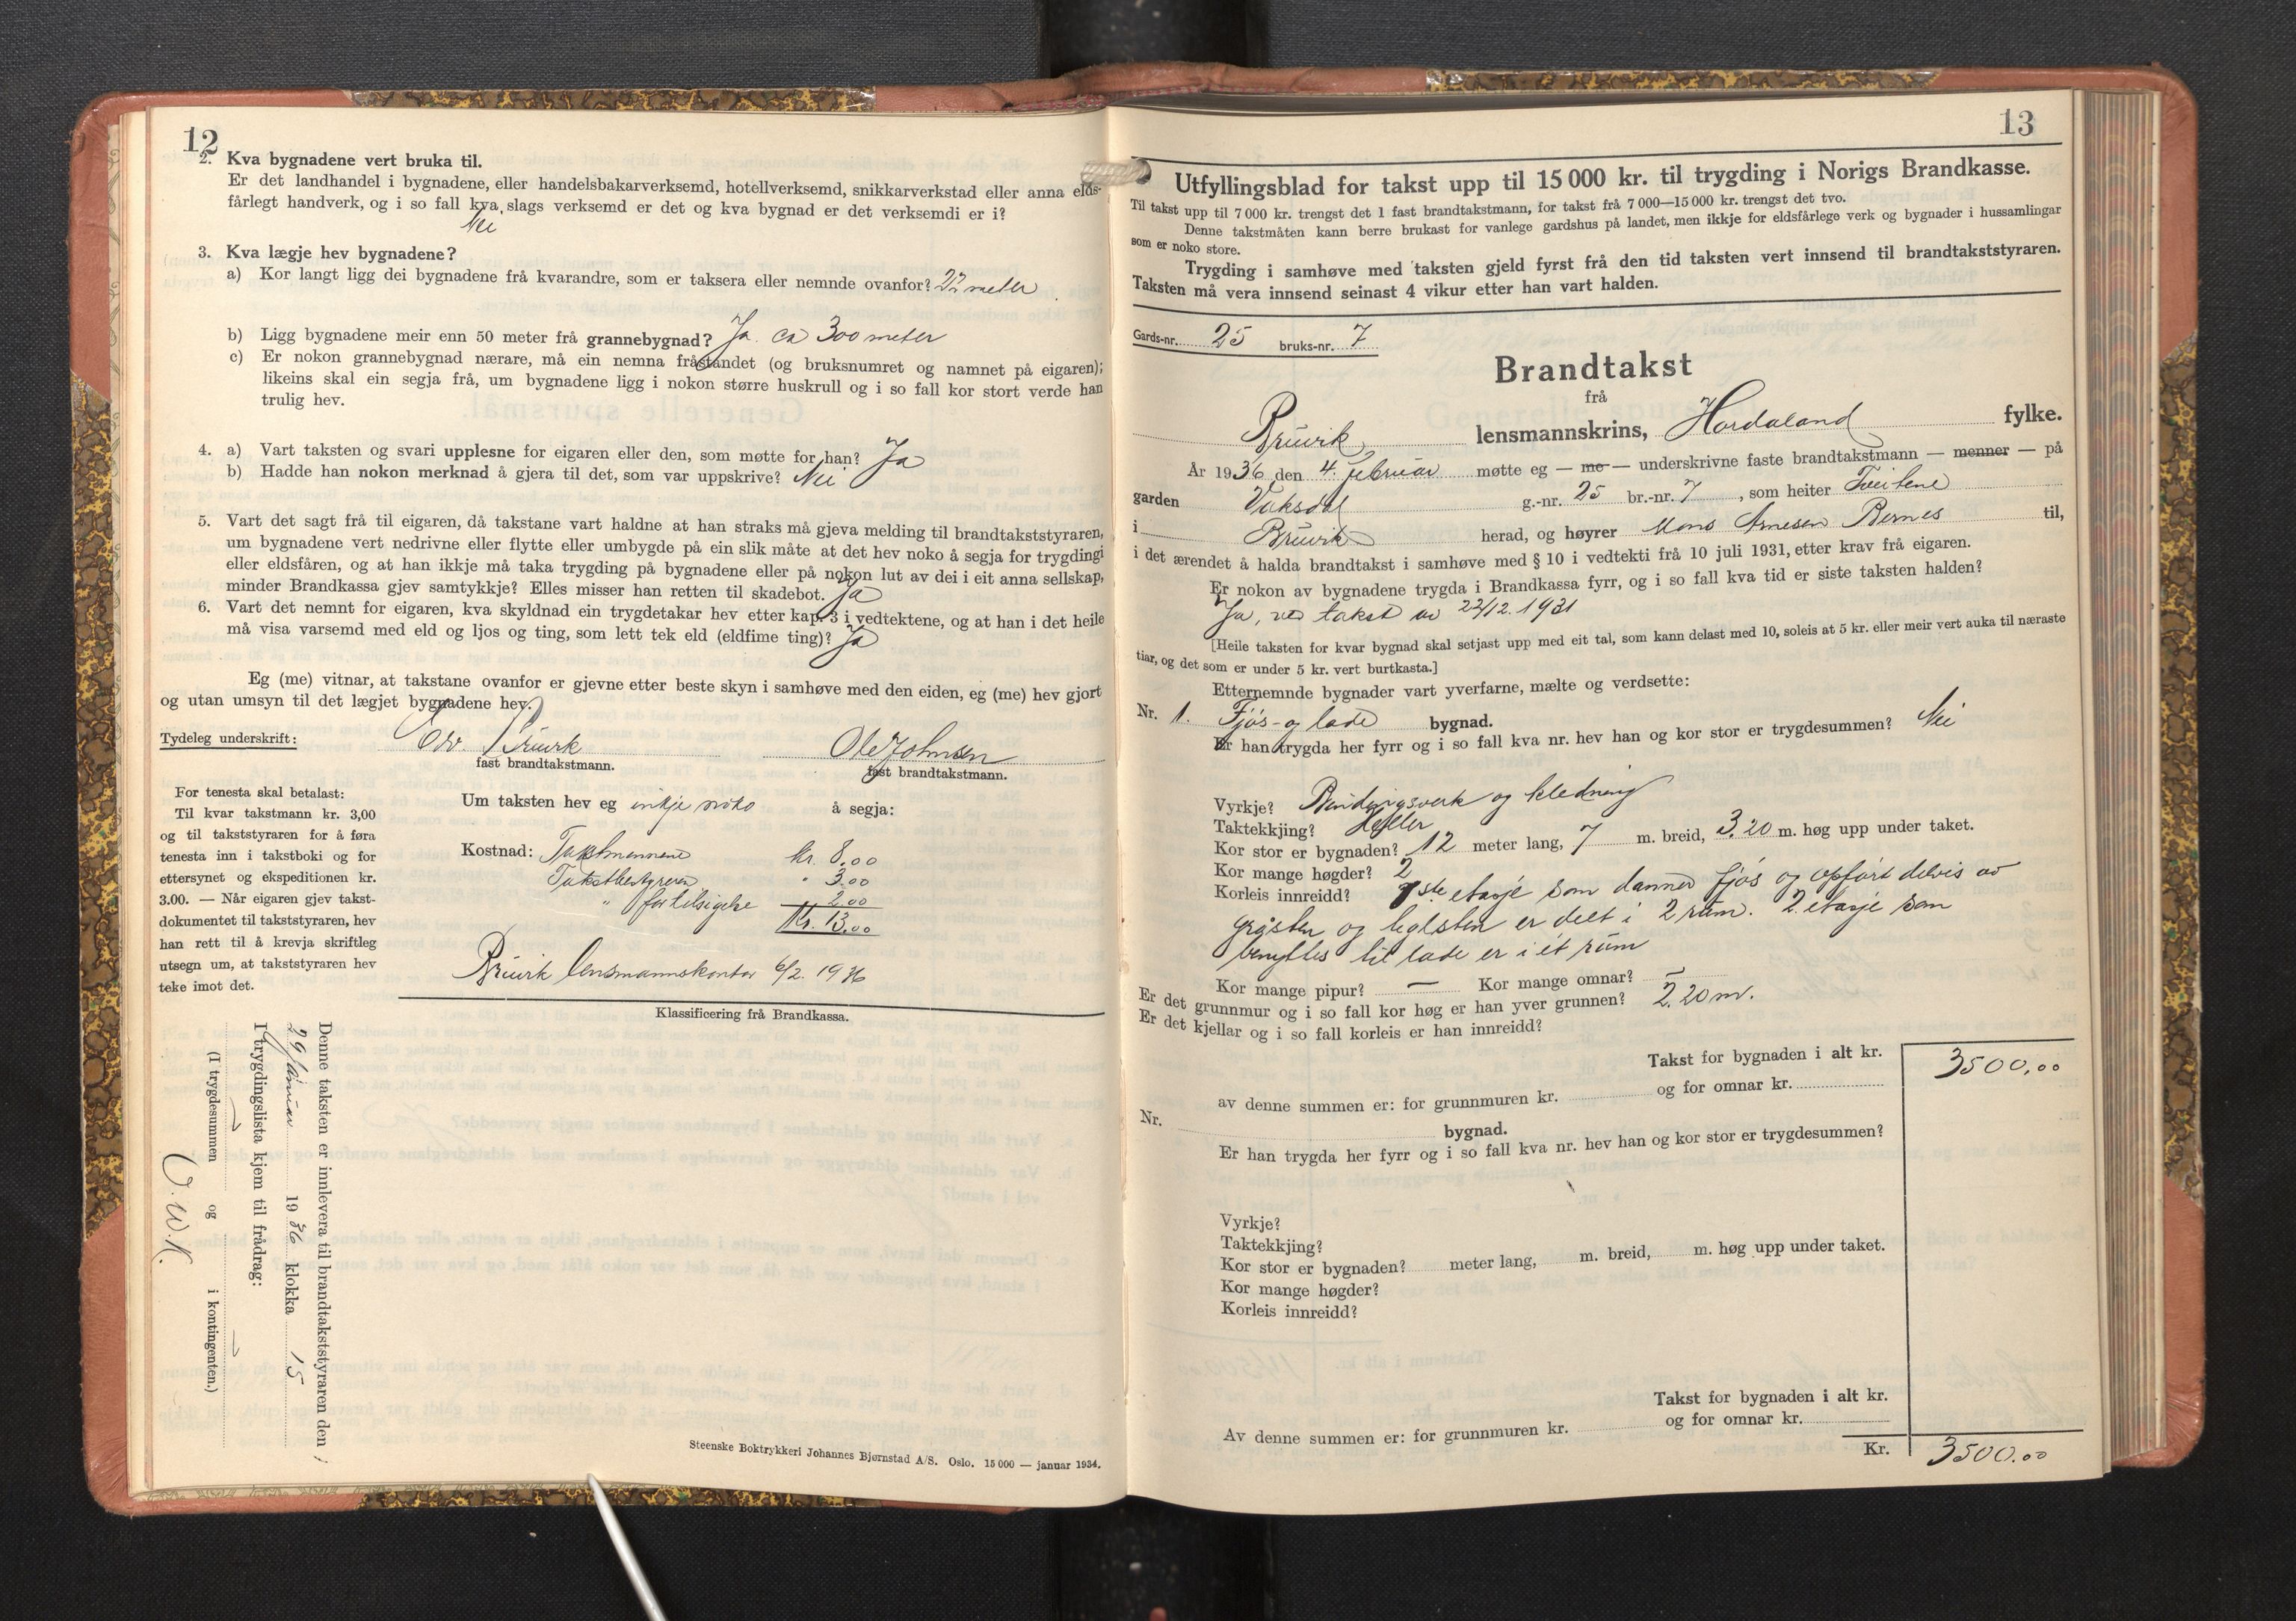 12
2. Kva bygnadene vert bruka til.
Er det landhandel i bygnadene, eller handelsbakarverksemd, hotellverksemd, snikkarverkstad eller anna elds-
fårlegt handverk, og i so fall kva slags verksemd er det og kva bygnad er det verksemdi er i?
Nei
3. Kva lægje hev bygnadene?
a) Kor langt ligg dei bygnadene frå kvarandre, som er taksera eller nemnde ovanfor? 22 meter
b) Ligg bygnadene meir enn 50 meter frå grannebygnad? Ja. ca 300 meter
c) Er nokon grannebygnad nærare, må ein nemna fråstandet (og bruksnumret og namnet på eigaren);
likeins skal ein segja frå, um bygnadene ligg i nokon større huskrull og i so fall kor stort verde han
trulig hev.
4. a) Vart taksten og svari upplesne for eigaren eller den, som møtte for han? Ja
b) Hadde han nokon merknad å gjera til det, som var uppskrive? Nei
5. Vart det sagt frå til eigaren, då takstane vart haldne at han straks må gjeva melding til brandtakststyraren,
um bygnadene vert nedrivne eller flytte eller umbygde på ein slik måte at det hev noko å segja for trygdingi
eller eldsfåren, og at han ikkje må taka trygding på bygnadene eller på nokon lut av dei i eit anna sellskap,
minder Brandkassa gjev samtykkje? Elles misser han retten til skadebot. Ja
6. Vart det nemnt for eigaren, kva skyldnad ein trygdetakar hev etter kap. 3 i vedtektene, og at han i det heile
må visa varsemd med eld og ljos og ting, som lett tek eld (eldfime ting)? Ja
Eg (me) vitnar, at takstane ovanfor er gjevne etter beste skyn i samhøve med den eiden, eg (me) hev gjort
og utan umsyn til det lægjet bygnadene hev.
Tydeleg underskrift: Edv. Bruvik Ole Johnsen
fast brandtakstmann. fast brandtakstmann.
For tenesta skal betalast:
Til kvar takstmann kr. 3,00
og til takststyraren for å føra
tenesta inn i takstboki og for
ettersynet og ekspeditionen kr.
3.00. — Når eigaren gjev takst-
dokumentet til takststyraren, hev
han rett til å krevja skriftleg
utsegn um, at takststyraren hev
teke imot det.
Um taksten hev eg inkje noko å segja:
Kostnad: Takstmennene kr. 8.00
Takstbestyreren " 3.00
" for tilsigelse 2.00
Kr. 13.00
Bruvik lensmannskontor 6/2. 1936
Klassificering frå Brandkassa.
Denne taksten er innlevera til brandtakststyraren den
29 januar 1936 klokka 15
I trygdingslista kjem til frådrag:
(I trygdesummen og i kontingenten.)
O. W. K.
Steenske Boktrykkeri Johannes Bjørnstad A/S. Oslo. 15 000 — januar 1934.
13
Utfyllingsblad for takst upp til 15 000 kr. til trygding i Norigs Brandkasse.
Til takst upp til 7 000 kr. trengst det 1 fast brandtakstmann, for takst frå 7 000—15 000 kr. trengst det tvo.
Denne takstmåten kann berre brukast for vanlege gardshus på landet, men ikkje for eldsfårlege verk og bygnader i hussamlingar
som er noko store.
Trygding i samhøve med taksten gjeld fyrst frå den tid taksten vert innsend til brandtakststyraren.
Taksten må vera innsend seinast 4 vikur etter han vart halden.
Gards-nr. 25 bruks-nr. 7
Brandtakst
frå
Bruvik lensmannskrins, Hordaland fylke.
År 1936 den 4. februar møtte eg — me — underskrivne faste brandtakstmann — menner — på
garden Vaksdal g.-nr. 25 br.-nr. 7, som heiter Tveitene
i Bruvik herad, og høyrer Mons Arnesen Bernes til,
i det ærendet å halda brandtakst i samhøve med § 10 i vedtekti frå 10 juli 1931, etter krav frå eigaren.
Er nokon av bygnadene trygda i Brandkassa fyrr, og i so fall kva tid er siste taksten halden?
Ja, ved takst av 22/12. 1931
[Heile taksten for kvar bygnad skal setjast upp med eit tal, som kann delast med 10, soleis at 5 kr. eller meir vert auka til næraste
tiar, og det som er under 5 kr. vert burtkasta.]
Etternemnde bygnader vart yverfarne, mælte og verdsette:
Nr. 1. Fjøs- og lade bygnad.
Er han trygda her fyrr og i so fall kva nr. hev han og kor stor er trygdesummen? Nei
Vyrkje? Bindingsverk og kledning
Taktekkjing? Heller
Kor stor er bygnaden? 12 meter lang, 7 m. breid, 3.20 m. høg upp under taket.
Kor mange høgder? 2
Korleis innreidd? 1ste etasje som danner fjøs og opført delvis av
gråsten og teglsten er delt i 2 rum. 2. etasje som
benyttes til lade er i et rum
Kor mange pipur? — Kor mange omnar? —
Er det grunnmur og i so fall kor høg er han yver grunnen? 2.20 m.
Er det kjellar og i so fall korleis er han innreidd?
Takst for bygnaden i alt kr. 3500.00
av denne summen er: for grunnmuren kr. og for omnar kr.
Nr. bygnad.
Er han trygda her fyrr og i so fall kva nr. hev han og kor stor er trygdesummen?
Vyrkje?
Taktekkjing?
Kor stor er bygnaden? meter lang, m. breid, m. høg upp under taket.
Kor mange høgder?
Korleis innreidd?
Takst for bygnaden i alt kr.
Av denne summen er: for grunnmuren kr. og for omnar kr.
Kr. 3500.00